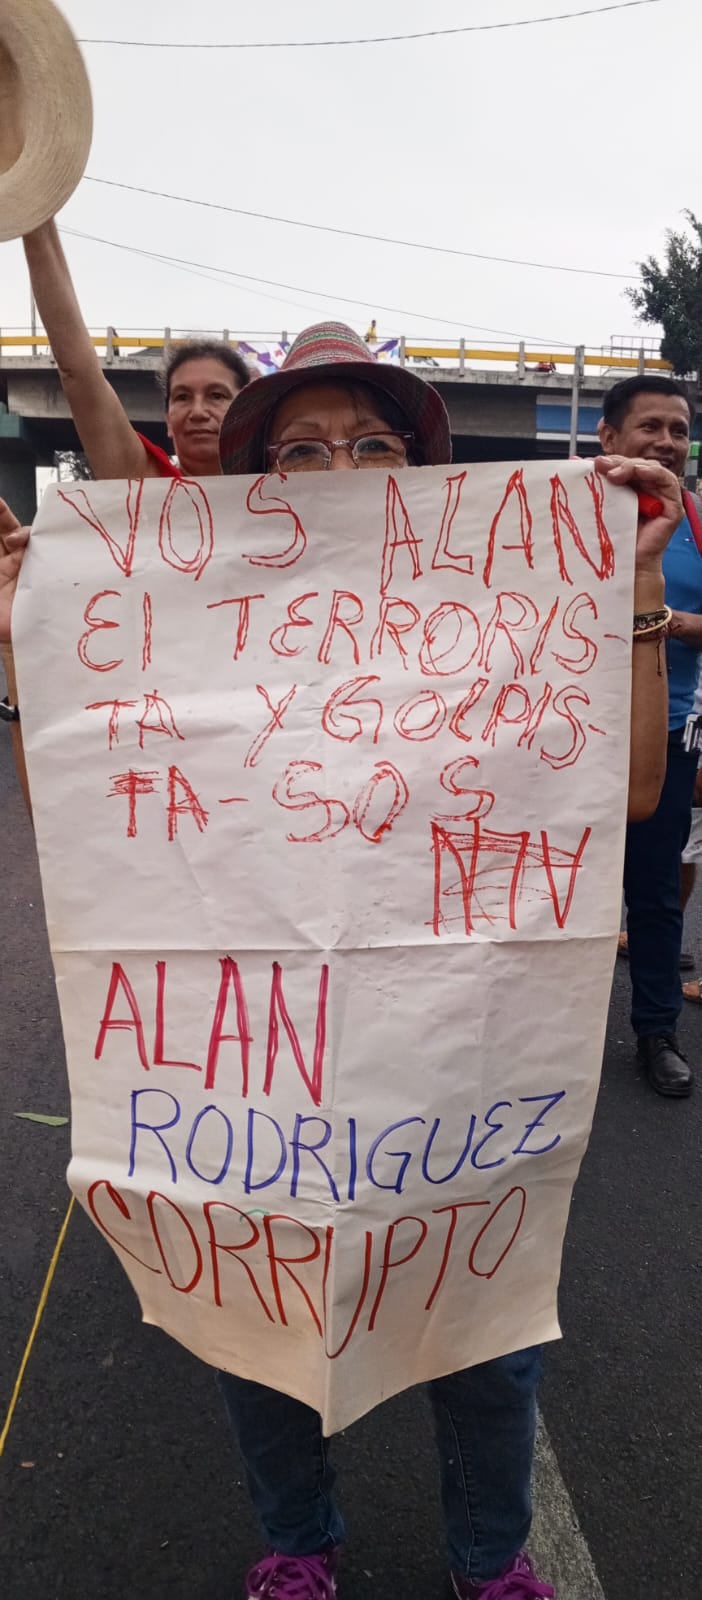 VOS ALAN
El TERRORIS-
TA Y GOLPIS-
TA-SOS
ALAN
RODRIGUEZ
CORRUPTO